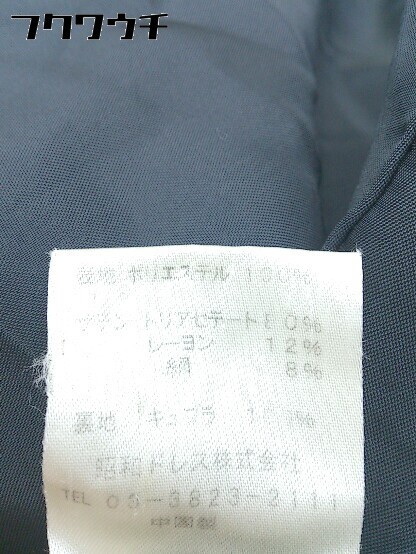 フクワウチ
表地 ポリエステル 100%
トリアセテート 80%
レーヨン 12%
絹 8%
裏地 キュプラ 100%
昭和ドレス株式会社
TEL 03-3823-2111
中国製